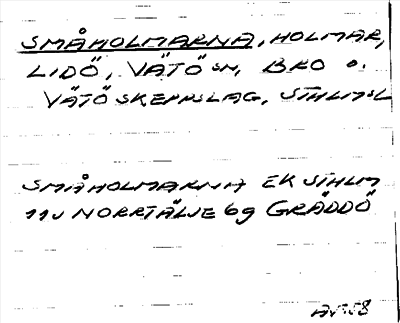 SMÅHOLMARNA, HOLMAR,
LIDÖ, VÄTÖ SN, BRO O.
VÄTÖ SKEPPSLAG, STHLMS L
SMÅHOLMARNA EK STHLM
11J NORRTÄLJE 6g GRÄDDÖ